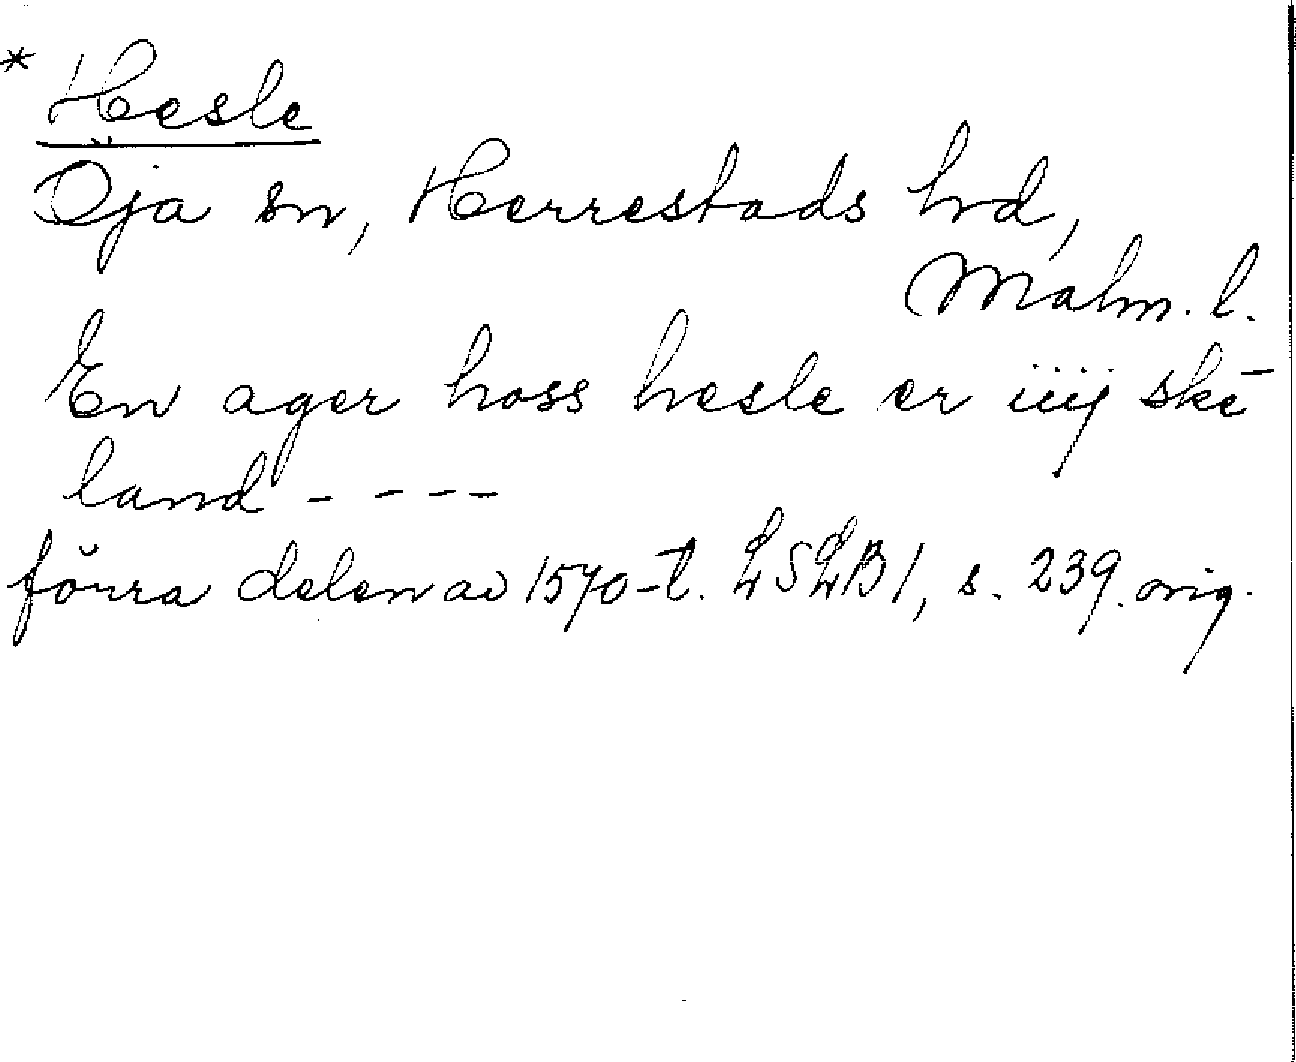 * Hesle
Öja sn, Herrestads hrd,
Malm. l.
En ager hoss hesle er iiij skē
land - - - -
förra delen av 1570-t. LSLB 1, s. 239. orig.